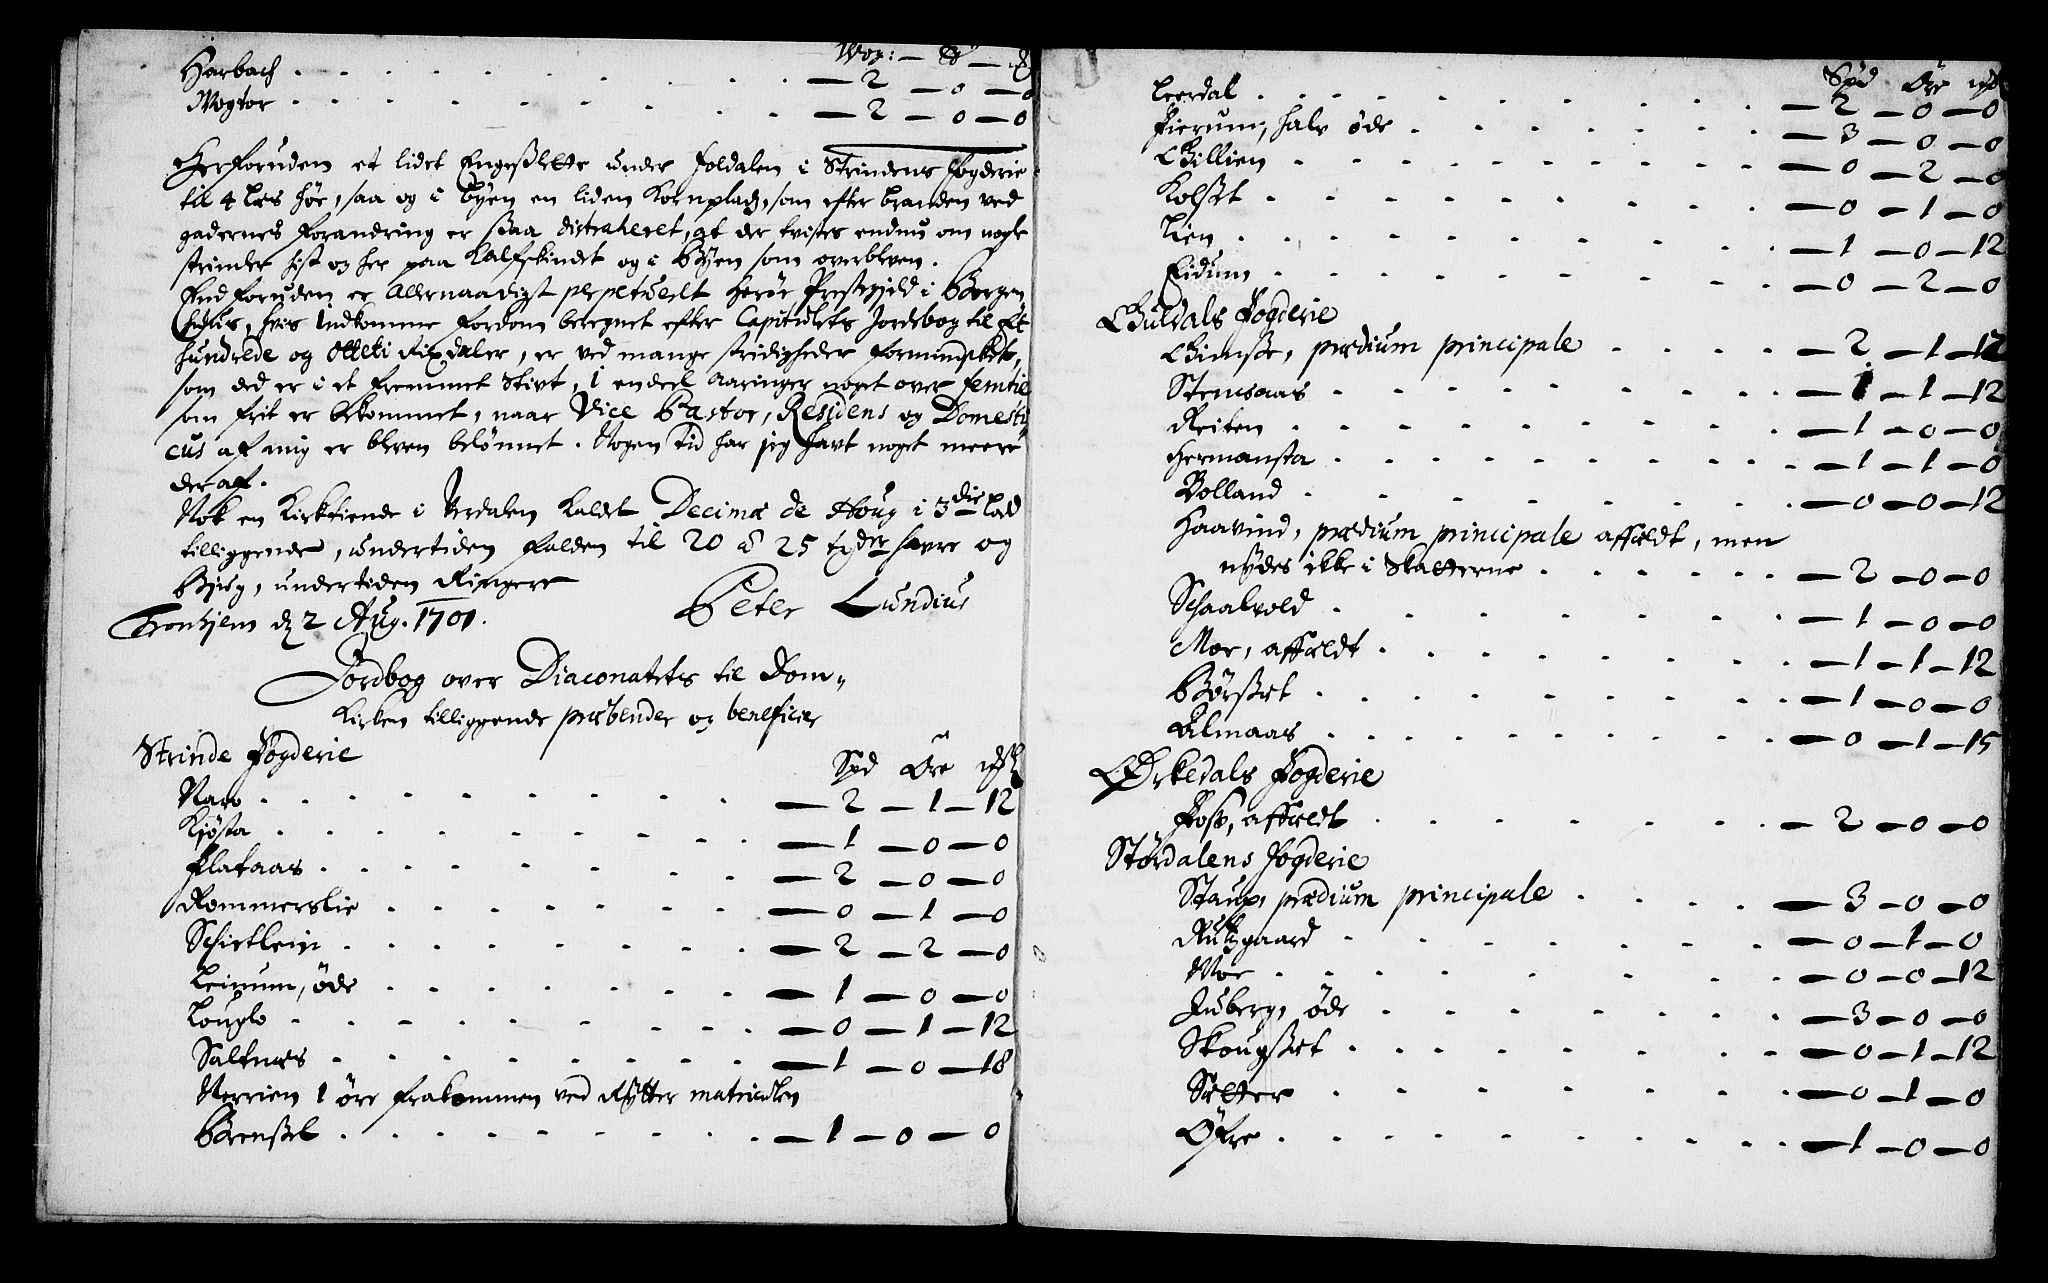 Wog: — ℔ —
Harbach . . . . . . . . . — 2 — 0 — 0
Wogtor . . . . . . . . . — 2 — 0 — 0
Herforuden et lidet Engeslette under Joldalen i Strindens fogderie
til 4 Læs höe, saa og i Byen en liden Kornplads, som efter branden ved
gadernes forandring er saa distraheret, at der tvistes endnu om nogle
strimler hist og her paa Kalfskindet og i Byen som overbleven.
End foruden er Allernaadigst perpetuerlt Herøe Prestegield i Bergen
huus, hvis Indkomme fordom beregnet efter Capitulets Jordebog til Et
hundrede og Otteti Rixdaler, er ved mange stridigheder formindsket,
som ded er i et fremmet Stift, i endeel Aaringer noget over femtie
som frit er bekommet, naar Vice Pastor, Residens og Domesti
cus af mig er bleven belönnet. Nogen tid har jeg havt noget meere
deraf.
Nok en Kirketiende i Verdalen kaldet Decimæ de Houg i 3die lod
tilliggende, undertiden falden til 20 à 25 tydr hafre og
Byug, undertiden Ringere
Peter Lundius
Tronhjem d 2 Aug. 1701.
Jordbog over Diaconatets til Dom„
Kirken tilliggende præbender og beneficier
Strinde Fogderie
Spd Öre
Narv . . . . . . . . . — 2 — 1 — 12
Kjösta . . . . . . . . . — 1 — 0 — 0
Flataas . . . . . . . . — 2 — 0 — 0
Rommerslie . . . . . . . — 0 — 1 — 0
Schietlein . . . . . . . — 2 — 2 — 0
Leinum, öde . . . . . . . — 1 — 0 — 0
Louglo . . . . . . . . — 0 — 1 — 12
Saltnæs . . . . . . . . — 1 — 0 — 18
Nerrien 1 öre frakommen ved Rytter matriculen
Brenset . . . . . . . . — 1 — 0 — 0
Spd Öre
Leerdal . . . . . . . . . — 2 — 0 — 0
Fierum, halv öde . . . . . . . — 3 — 0 — 0
Gillien . . . . . . . . . — 0 — 2 — 0
Kolset . . . . . . . . . — 0 — 1 — 0
Lien . . . . . . . . . — 1 — 0 — 12
Eidum . . . . . . . . . — 0 — 2 — 0
Guldals Fogderie
Gimse, prædium principale . . . . — 2 — 1 — 12
Stensaas . . . . . . . . — 1 — 1 — 12
Reiten . . . . . . . . . — 1 — 0 — 0
Hermansta . . . . . . . . — 1 — 1 — 0
Volland . . . . . . . . — 0 — 0 — 12
Haavind, prædium principale affældt, men
nydes ikke i Skatterne . . . . . . — 2 — 0 — 0
Schaalvold . . . . . . . . — 1 — 0 — 0
Moe, affældt . . . . . . . — 1 — 1 — 12
Börset . . . . . . . . — 1 — 0 — 0
Almaas . . . . . . . . . — 0 — 1 — 15
Örkedals Fogderie
Foss, affældt . . . . . . . — 2 — 0 — 0
Stördalens Fogderie
Staup, prædium principale . . . . — 3 — 0 — 0
Rutzgaard . . . . . . . . — 0 — 1 — 0
Moe . . . . . . . . — 0 — 0 — 12
Juberg, öde . . . . . . . — 3 — 0 — 0
Skougset . . . . . . . . — 0 — 1 — 12
Sætter . . . . . . . . — 0 — 1 — 0
Öfre . . . . . . . . . — 1 — 0 — 0